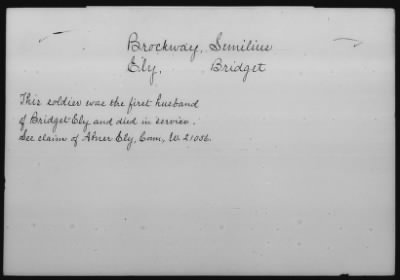 Brockway, Semilius
Ely, Bridget
This soldier was the first husband
of Bridget Ely and died in service.
See claim of Abner Ely, Conn, W. 21056.